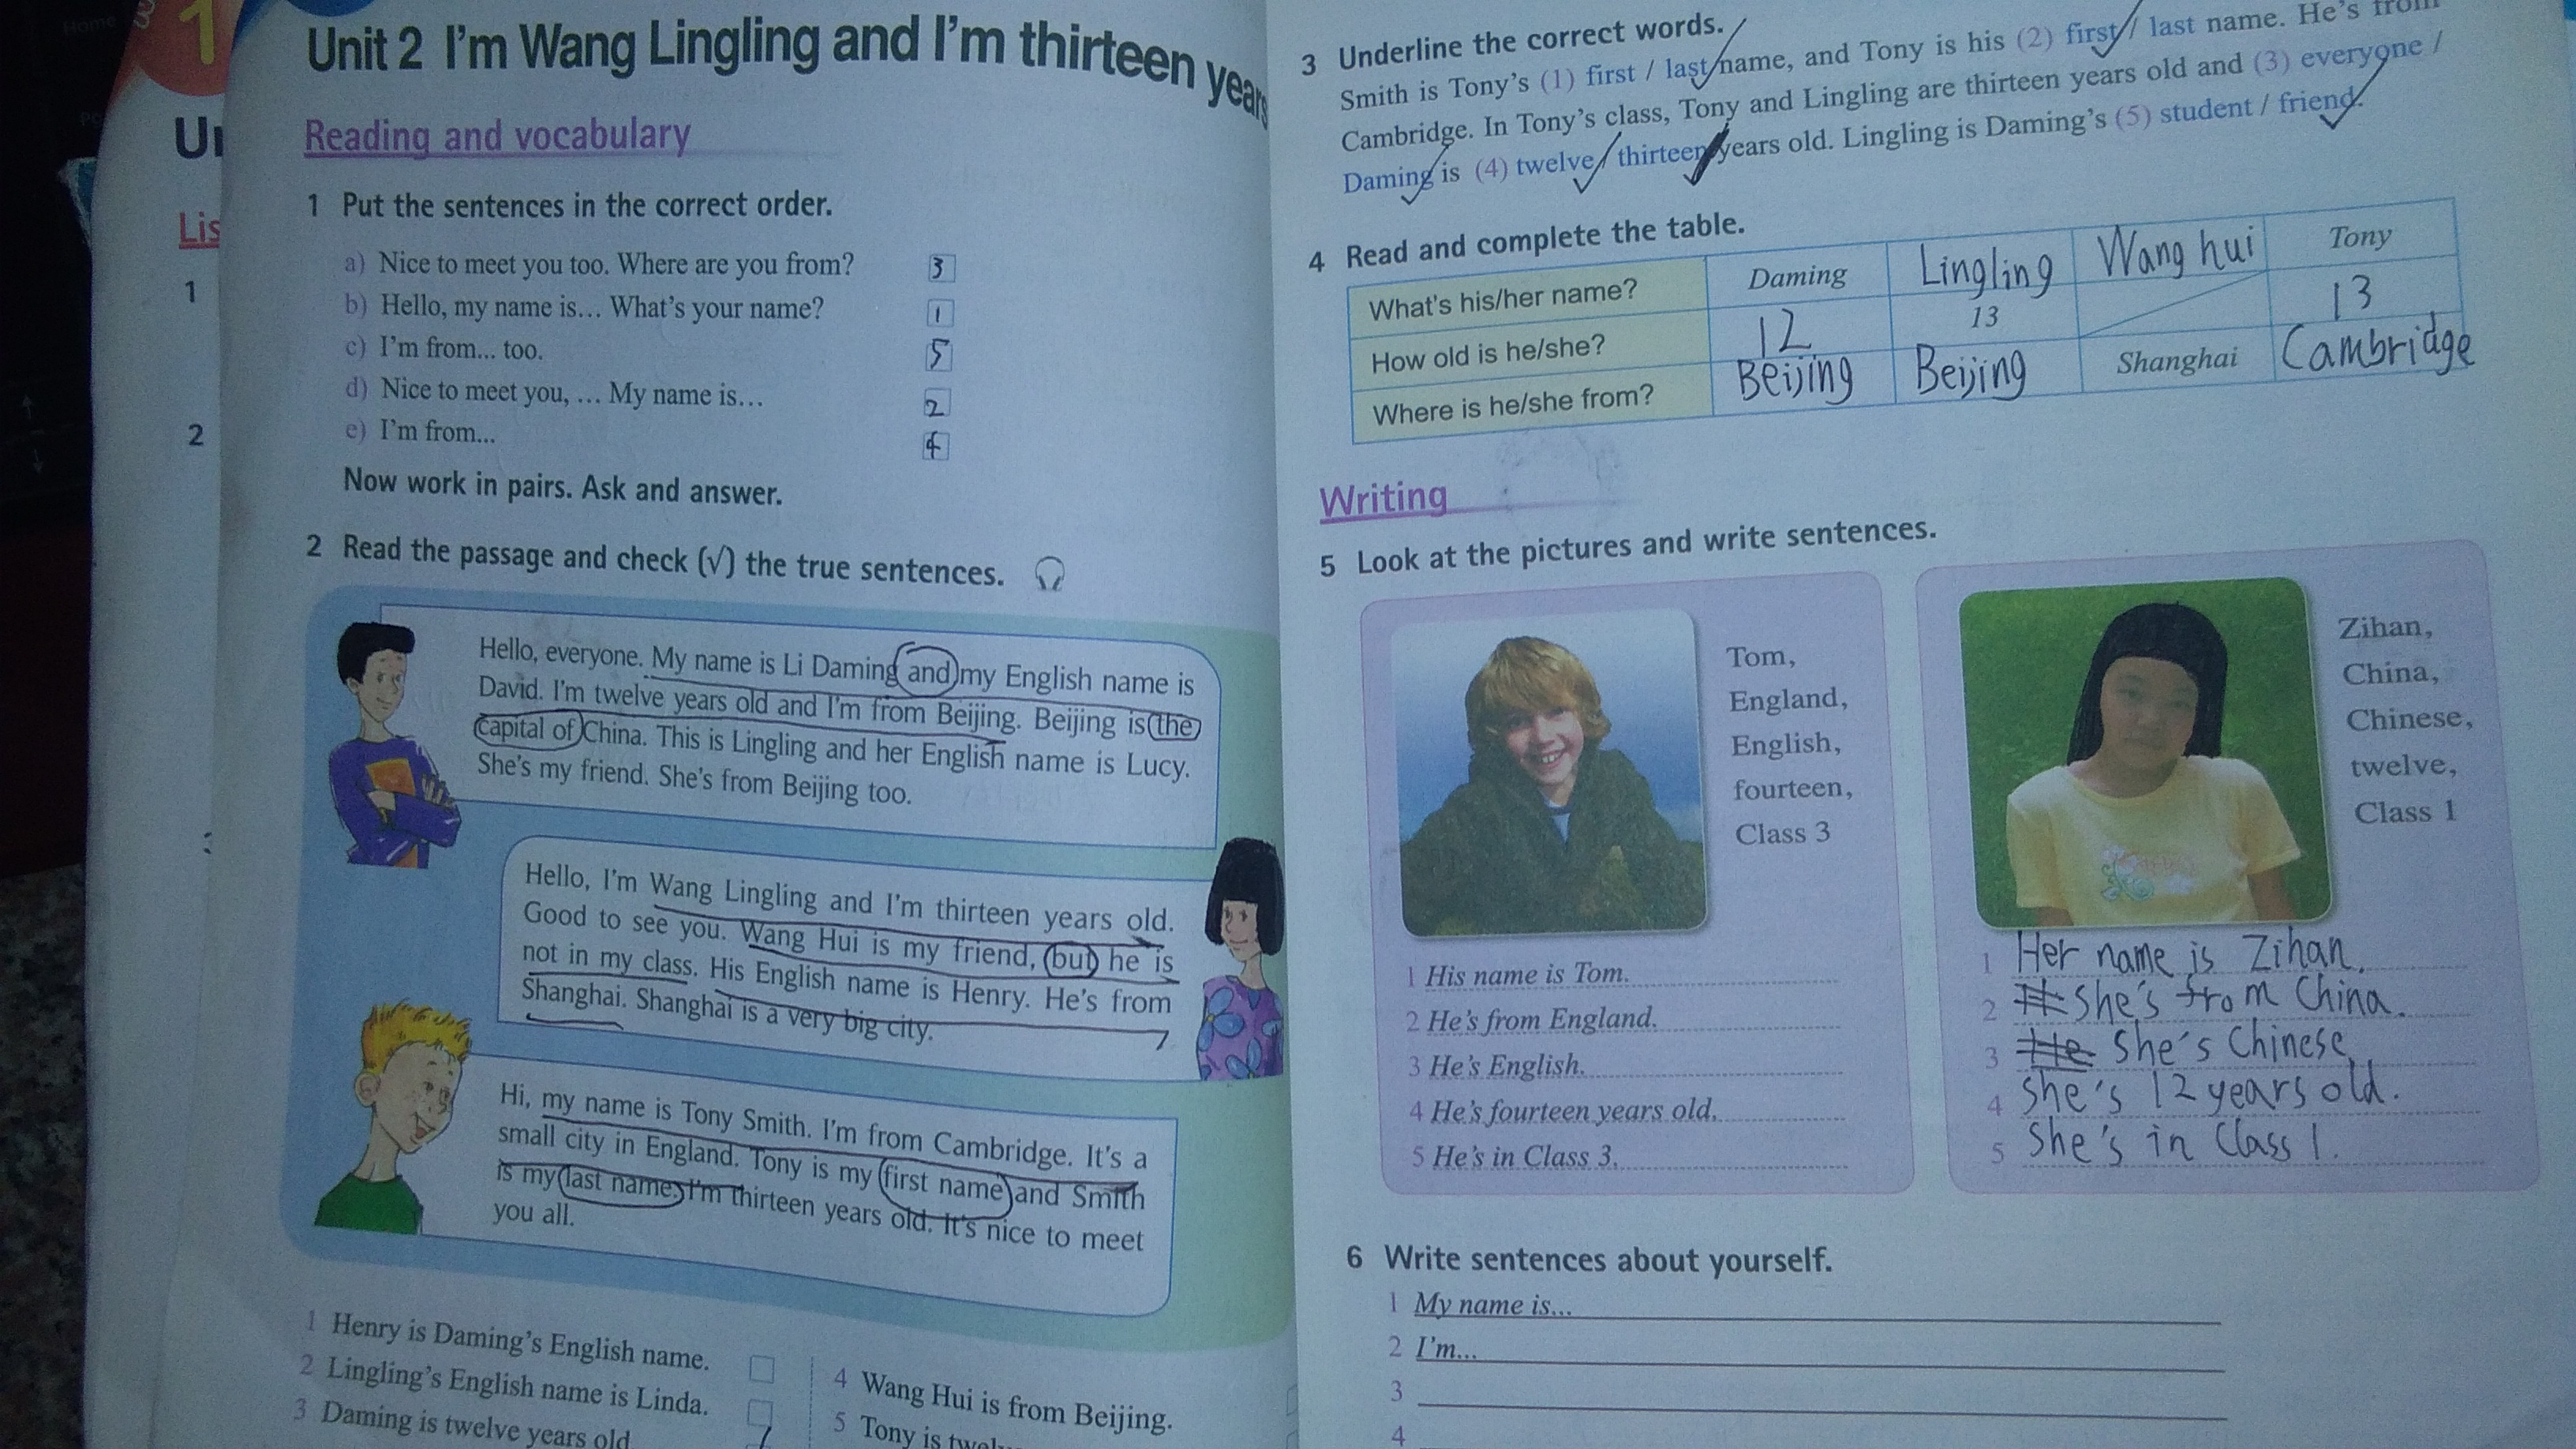 1
Unit 2 I'm Wang Lingling and I'm thirteen years
Reading and vocabulary
Lis
1
2
1 Put the sentences in the correct order.
a) Nice to meet you too. Where are you from? 3
b) Hello, my name is... What's your name? 1
c) I'm from... too. 5
d) Nice to meet you, ... My name is... 2
e) I'm from... 4
Now work in pairs. Ask and answer.
2 Read the passage and check (√) the true sentences.
Hello, everyone. My name is Li Daming and my English name is
David. I'm twelve years old and I'm from Beijing. Beijing is the
capital of China. This is Lingling and her English name is Lucy.
She's my friend. She's from Beijing too.
Hello, I'm Wang Lingling and I'm thirteen years old.
Good to see you. Wang Hui is my friend, but he is
not in my class. His English name is Henry. He's from
Shanghai. Shanghai is a very big city.
Hi, my name is Tony Smith. I'm from Cambridge. It's a
small city in England. Tony is my first name and Smith
is my last name. I'm thirteen years old. It's nice to meet
you all.
1 Henry is Daming's English name.
2 Lingling's English name is Linda.
3 Daming is twelve years old
4 Wang Hui is from Beijing.
5 Tony is
3 Underline the correct words.
Smith is Tony's (1) first / last name, and Tony is his (2) first / last name. He's from
Cambridge. In Tony's class, Tony and Lingling are thirteen years old and (3) everyone /
Daming is (4) twelve / thirteen years old. Lingling is Daming's (5) student / friend.
4 Read and complete the table.
What's his/her name? Daming Lingling Wang hui Tony
How old is he/she? 12 13 13
Where is he/she from? Beijing Beijing Shanghai Cambridge
Writing
5 Look at the pictures and write sentences.
Tom,
England,
English,
fourteen,
Class 3
1 His name is Tom.
2 He's from England.
3 He's English.
4 He's fourteen years old.
5 He's in Class 3.
Zihan,
China,
Chinese,
twelve,
Class 1
1 Her name is Zihan.
2 She's from China.
3 He She's Chinese
4 She's 12 years old.
5 She's in Class 1.
6 Write sentences about yourself.
1 My name is...
2 I'm...
3
4